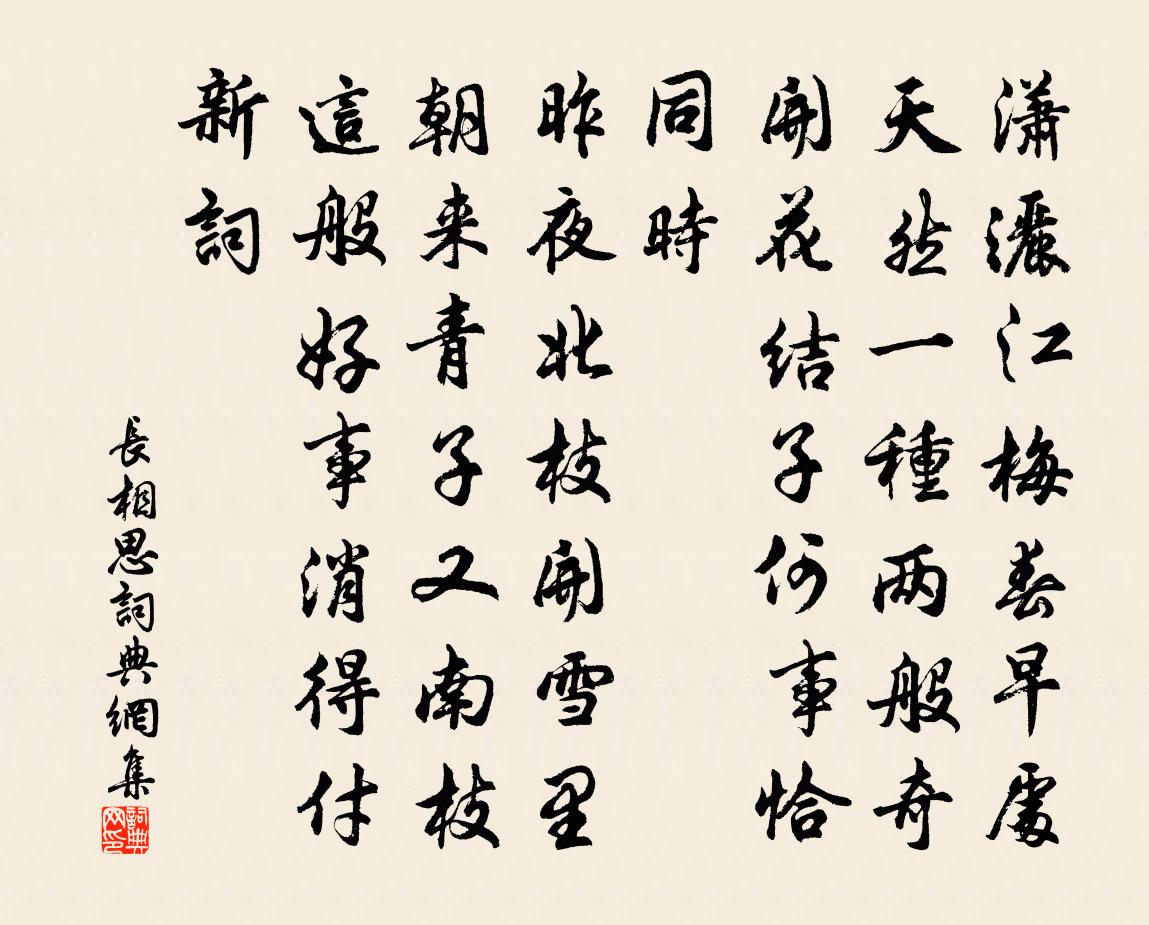 瀟灑江梅春早處
天然一種两般奇
開花結子何事恰
同時
昨夜北枝開雪里
朝来青子又南枝
這般好事消得付
新詞
長相思詞典網集
詞典
网印